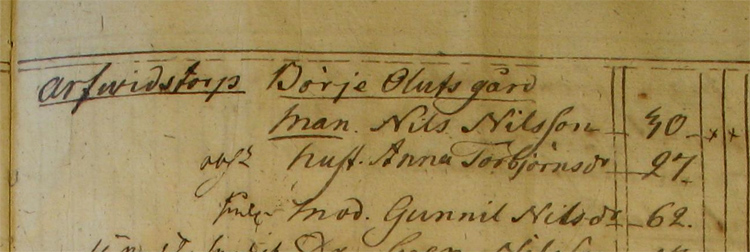 Arfwidstorp Börje Olufs gård
Man. Nils Nilsson 30 × ×
hust. Anna Torbjörnsdr 27
mod. Gunnil Nilsdr 62.